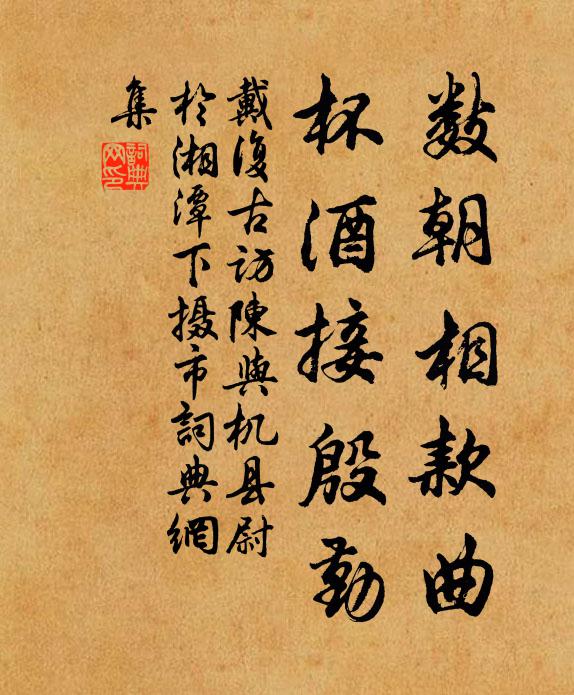 数朝相款曲
杯酒接殷勤
戴復古訪陳與机县尉
於湘潭下摄市詞典網
集
詞典網印